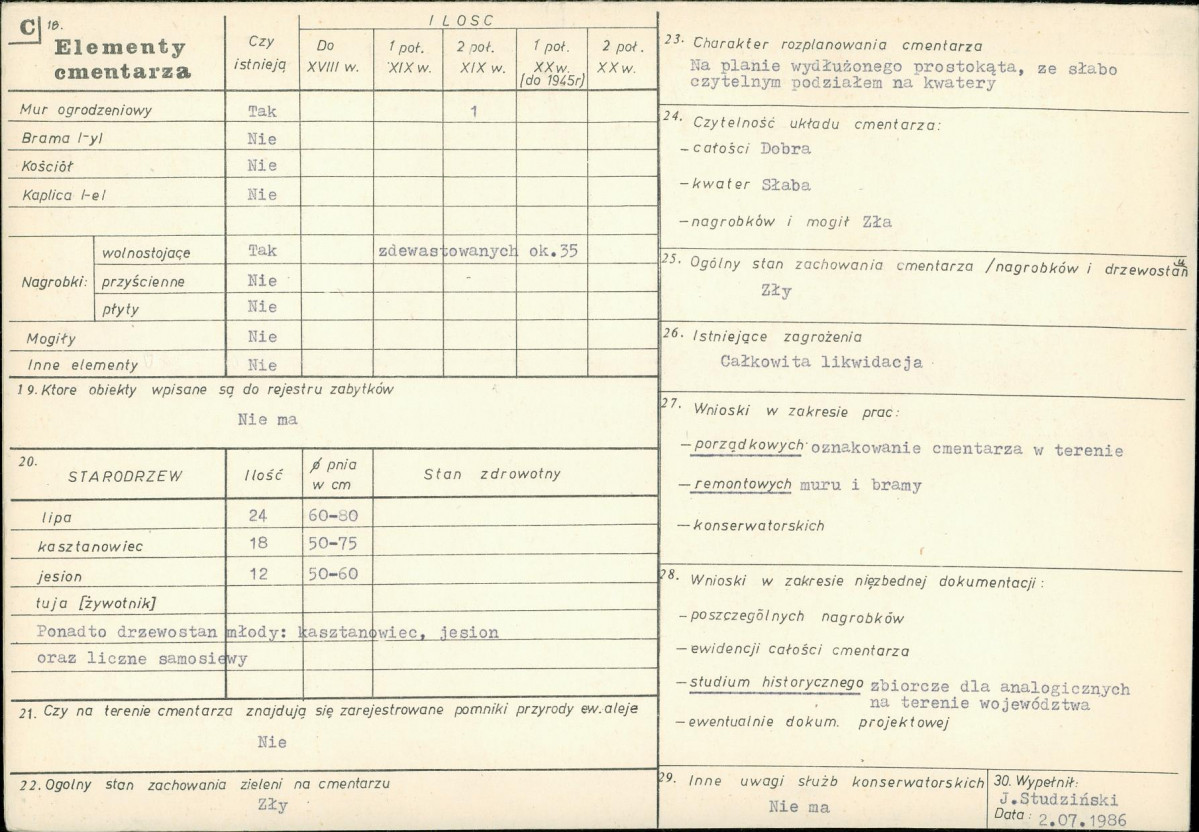 C 18.
Elementy cmentarza
Czy istnieją
ILOSC
Do XVIII w.
1 poł. XIX w.
2 poł. XIX w.
1 poł. XX w. (do 1945r)
2 poł. XX w.
Mur ogrodzeniowy Tak 1
Brama /-y/ Nie
Kościół Nie
Kaplica /-e/ Nie
Nagrobki:
wolnostojące Tak zdewastowanych ok.35
przyścienne Nie
płyty Nie
Mogiły Nie
Inne elementy Nie
19. Ktore obiekty wpisane są do rejestru zabytków
Nie ma
20.
STARODRZEW Ilość ∅ pnia w cm Stan zdrowotny
lipa 24 60-80
kasztanowiec 18 50-75
jesion 12 50-60
tuja [żywotnik]
Ponadto drzewostan młody: kasztanowiec, jesion
oraz liczne samosiewy
21. Czy na terenie cmentarza znajdują się zarejestrowane pomniki przyrody ew. aleje
Nie
22. Ogolny stan zachowania zieleni na cmentarzu
Zły
23. Charakter rozplanowania cmentarza
Na planie wydłużonego prostokąta, ze słabo
czytelnym podziałem na kwatery
24. Czytelność układu cmentarza:
- całości Dobra
- kwater Słaba
- nagrobków i mogił Zła
25. Ogólny stan zachowania cmentarza /nagrobków i drzewostanu
Zły
26. Istniejące zagrożenia
Całkowita likwidacja
27. Wnioski w zakresie prac:
- porządkowych oznakowanie cmentarza w terenie
- remontowych muru i bramy
- konserwatorskich
28. Wnioski w zakresie nięzbednej dokumentacji:
- poszczególnych nagrobków
- ewidencji całości cmentarza
- studium historycznego zbiorcze dla analogicznych
na terenie województwa
- ewentualnie dokum. projektowej
29. Inne uwagi służb konserwatorskich
Nie ma
30. Wypełnił:
J.Studziński
Data: 2.07.1986